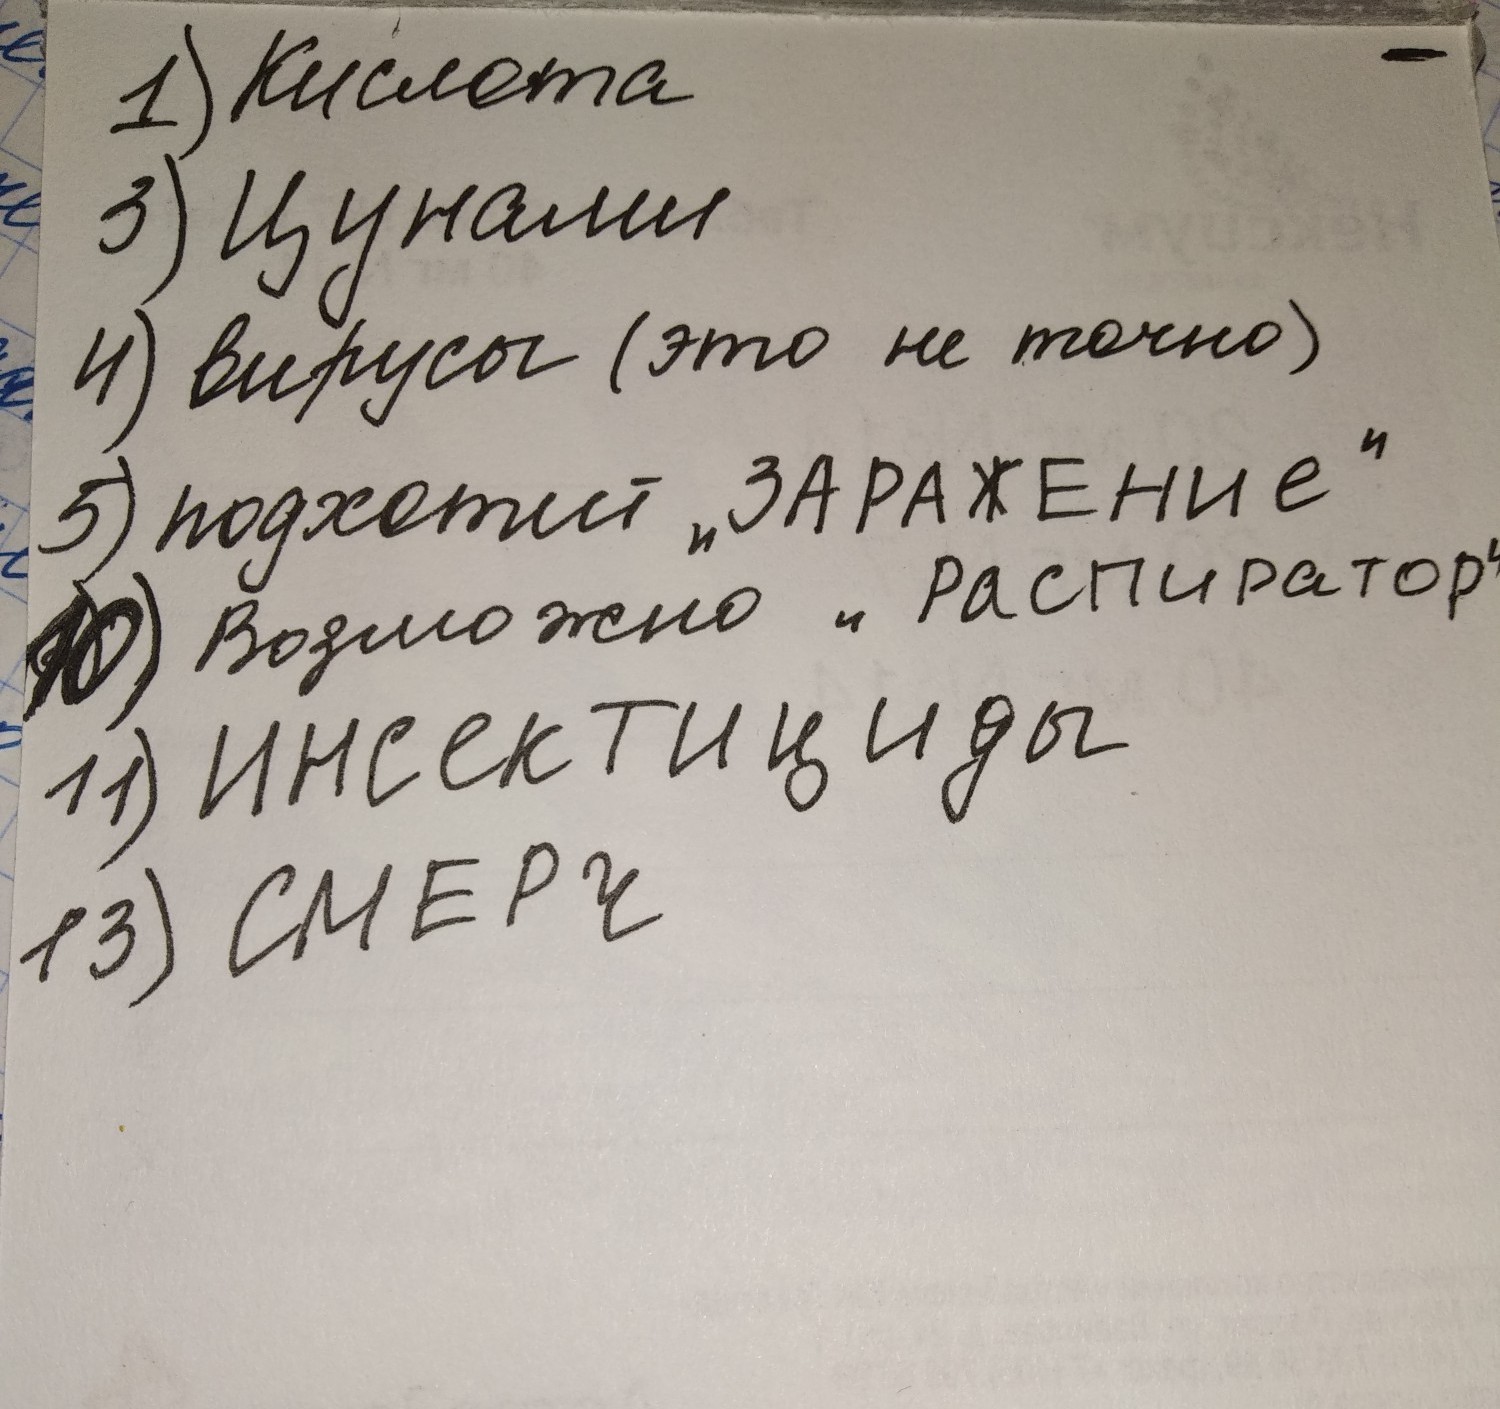 1) Кислота
3) Цунами
4) вирусы (это не точно)
5) подхотит „ЗАРАЖЕНИе"
10) Возможно „РаСПИРатор"
11) ИНСеКТИЦИДЫ
13) СМЕРЧ